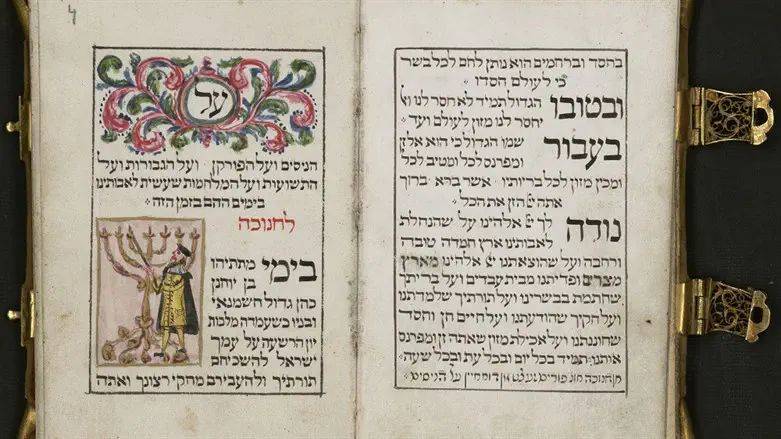 בחסד וברחמים הוא נותן לחם לכל בשר
כי לעולם חסדו
ובטובו הגדול תמיד לא חסר לנו
יחסר לנו מזון לעולם ועד
בעבור שמו הגדול כי הוא אל זן
ומפרנס לכל ומטיב לכל
ומכין מזון לכל בריותיו אשר ברא ברוך
אתה יי הזן את הכל
נודה לך יי אלהינו על שהנחלת
לאבותינו ארץ חמדה טובה
ורחבה ועל שהוצאתנו יי אלהינו מארץ
מצרים ופדיתנו מבית עבדים ועל בריתך
שחתמת בבשרינו ועל תורתיך שלמדתנו
ועל חקיך שהודעתנו ועל חיים חן וחסד
שחוננתנו ועל אכילת מזון שאתה זן ומפרנס
אותנו תמיד בכל יום ובכל עת ובכל שעה
חנוכה פורים על הניסים
4
על
הניסים ועל הפורקן ועל הגבורות ועל
התשועות ועל המלחמות שעשית לאבותינו
בימים ההם בזמן הזה
לחנוכה
בימי מתתיהו
בן יוחנן
כהן גדול חשמנאי
ובניו כשעמדה מלכות
יון הרשעה על עמך
ישראל להשכיחם
תורתיך ולהעבירם מחקי רצונך ואתה